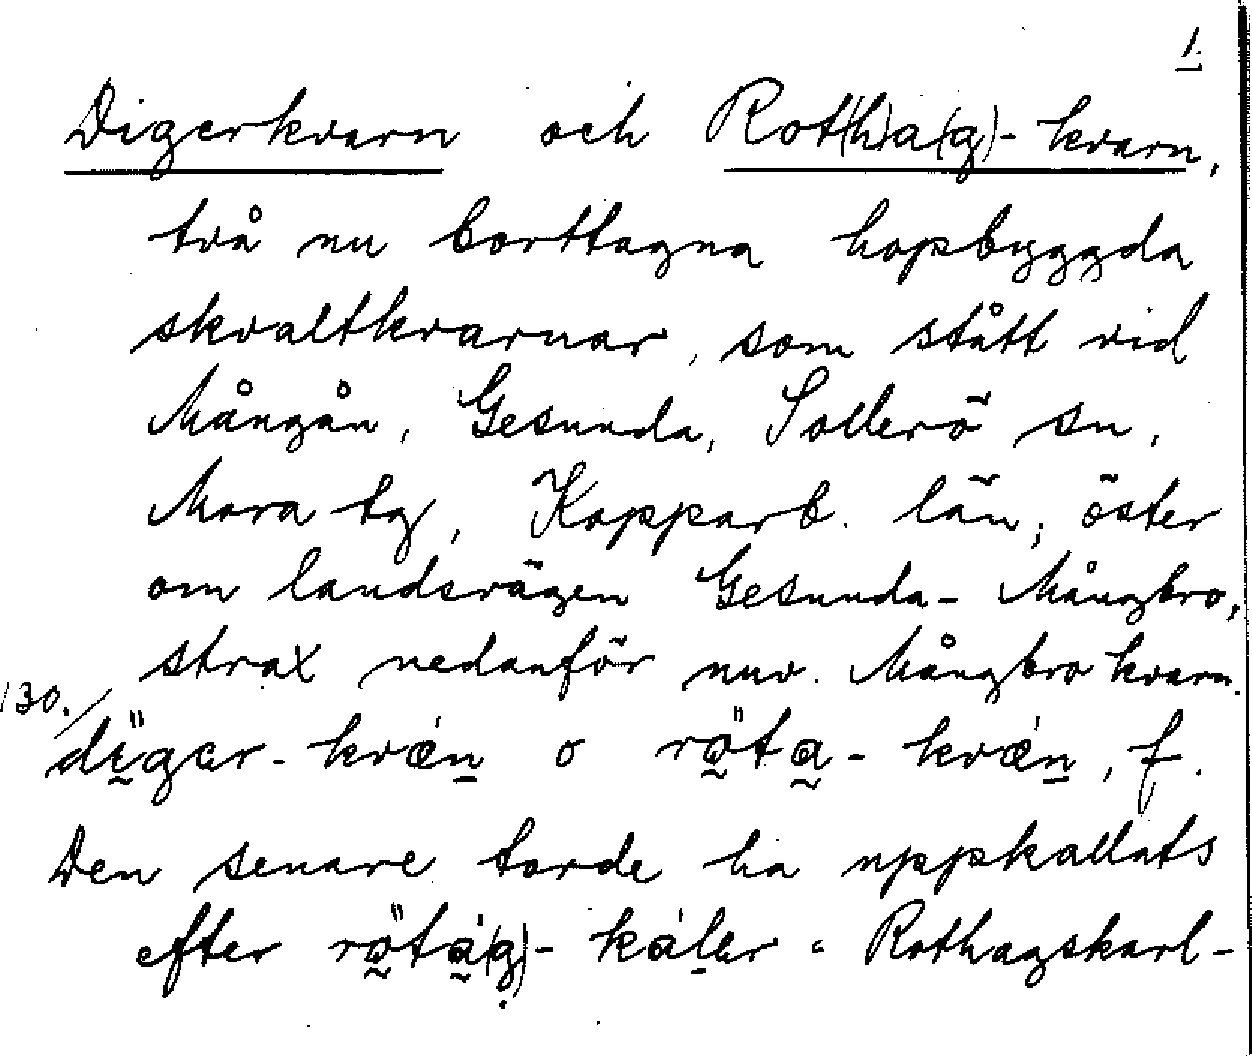 1.
Digerkvarn och Rot(h)a(g)-kvarn,
två nu borttagna hopbyggda
skvaltkvarnar, som stått vid
Mångån, Gesunda, Sollerö sn,
Mora tg, Kopparb. län, öster
om landsvägen Gesunda-Mångbro,
strax nedanför nuv. Mångbro kvarn.
130./
dïger-kvæ̀n o röta-kvæ̀n, f.
Den senare torde ha uppkallats
efter rötá(g)-káler = Rothagskarl-